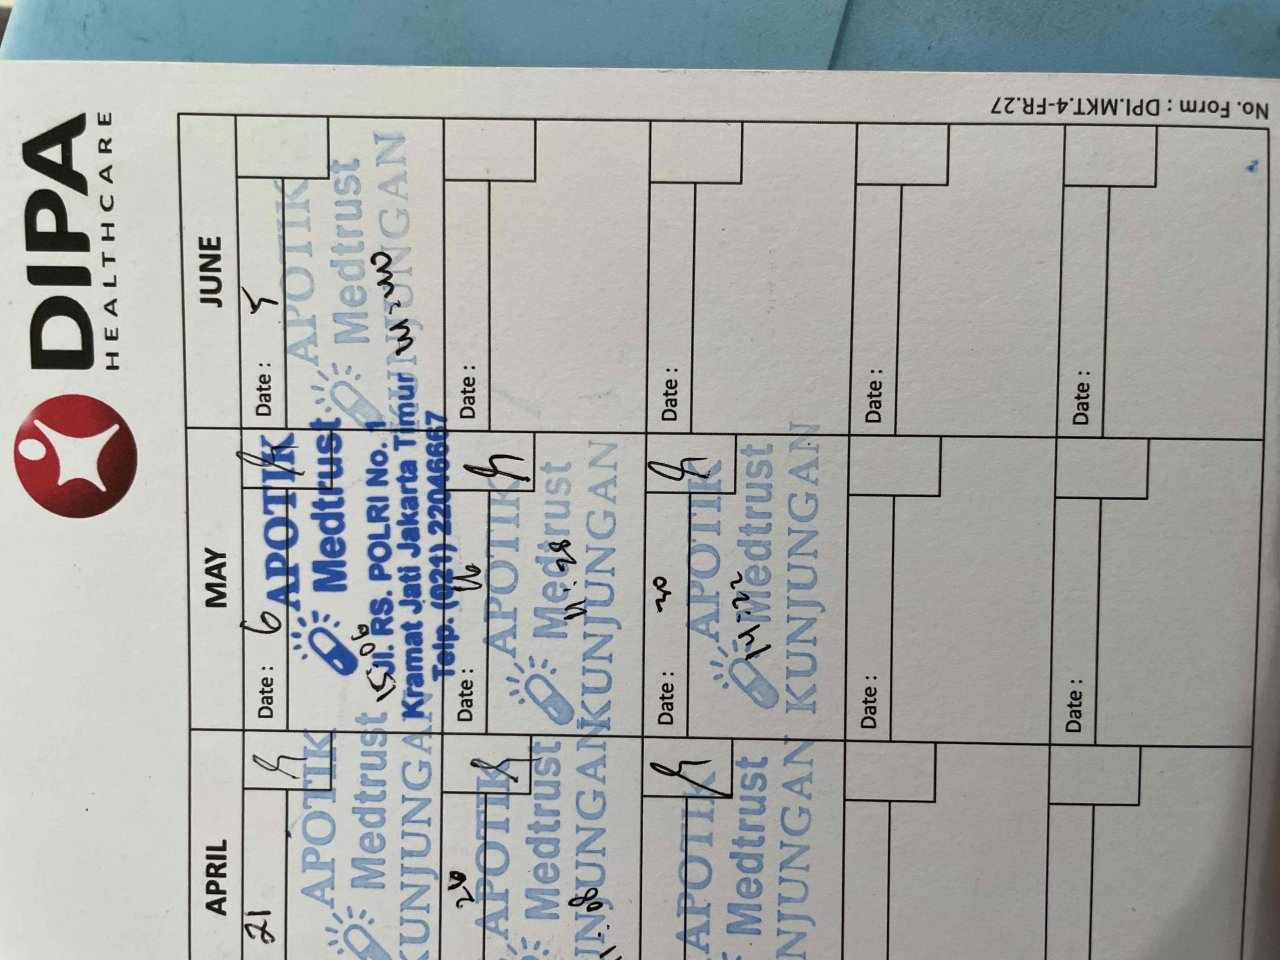 DIPA
HEALTHCARE
No. Form : DPI.MKT.4-FR.27
APRIL
MAY
JUNE
21
APOTIK
Medtrust
KUNJUNGAN
Date : 6
APOTIK
Medtrust
15:06
Jl. RS. POLRI No. 1
Kramat Jati Jakarta Timur
Telp. (021) 22046667
Date : 5
APOTIK
Medtrust
KUNJUNGAN
APOTIK
Medtrust
NJUNGAN
Date : 16
APOTIK
Medtrust
11:28
KUNJUNGAN
Date :
APOTIK
Medtrust
NJUNGAN
Date : 20
APOTIK
Medtrust
14:22
KUNJUNGAN
Date :
Date :
Date :
Date :
Date :